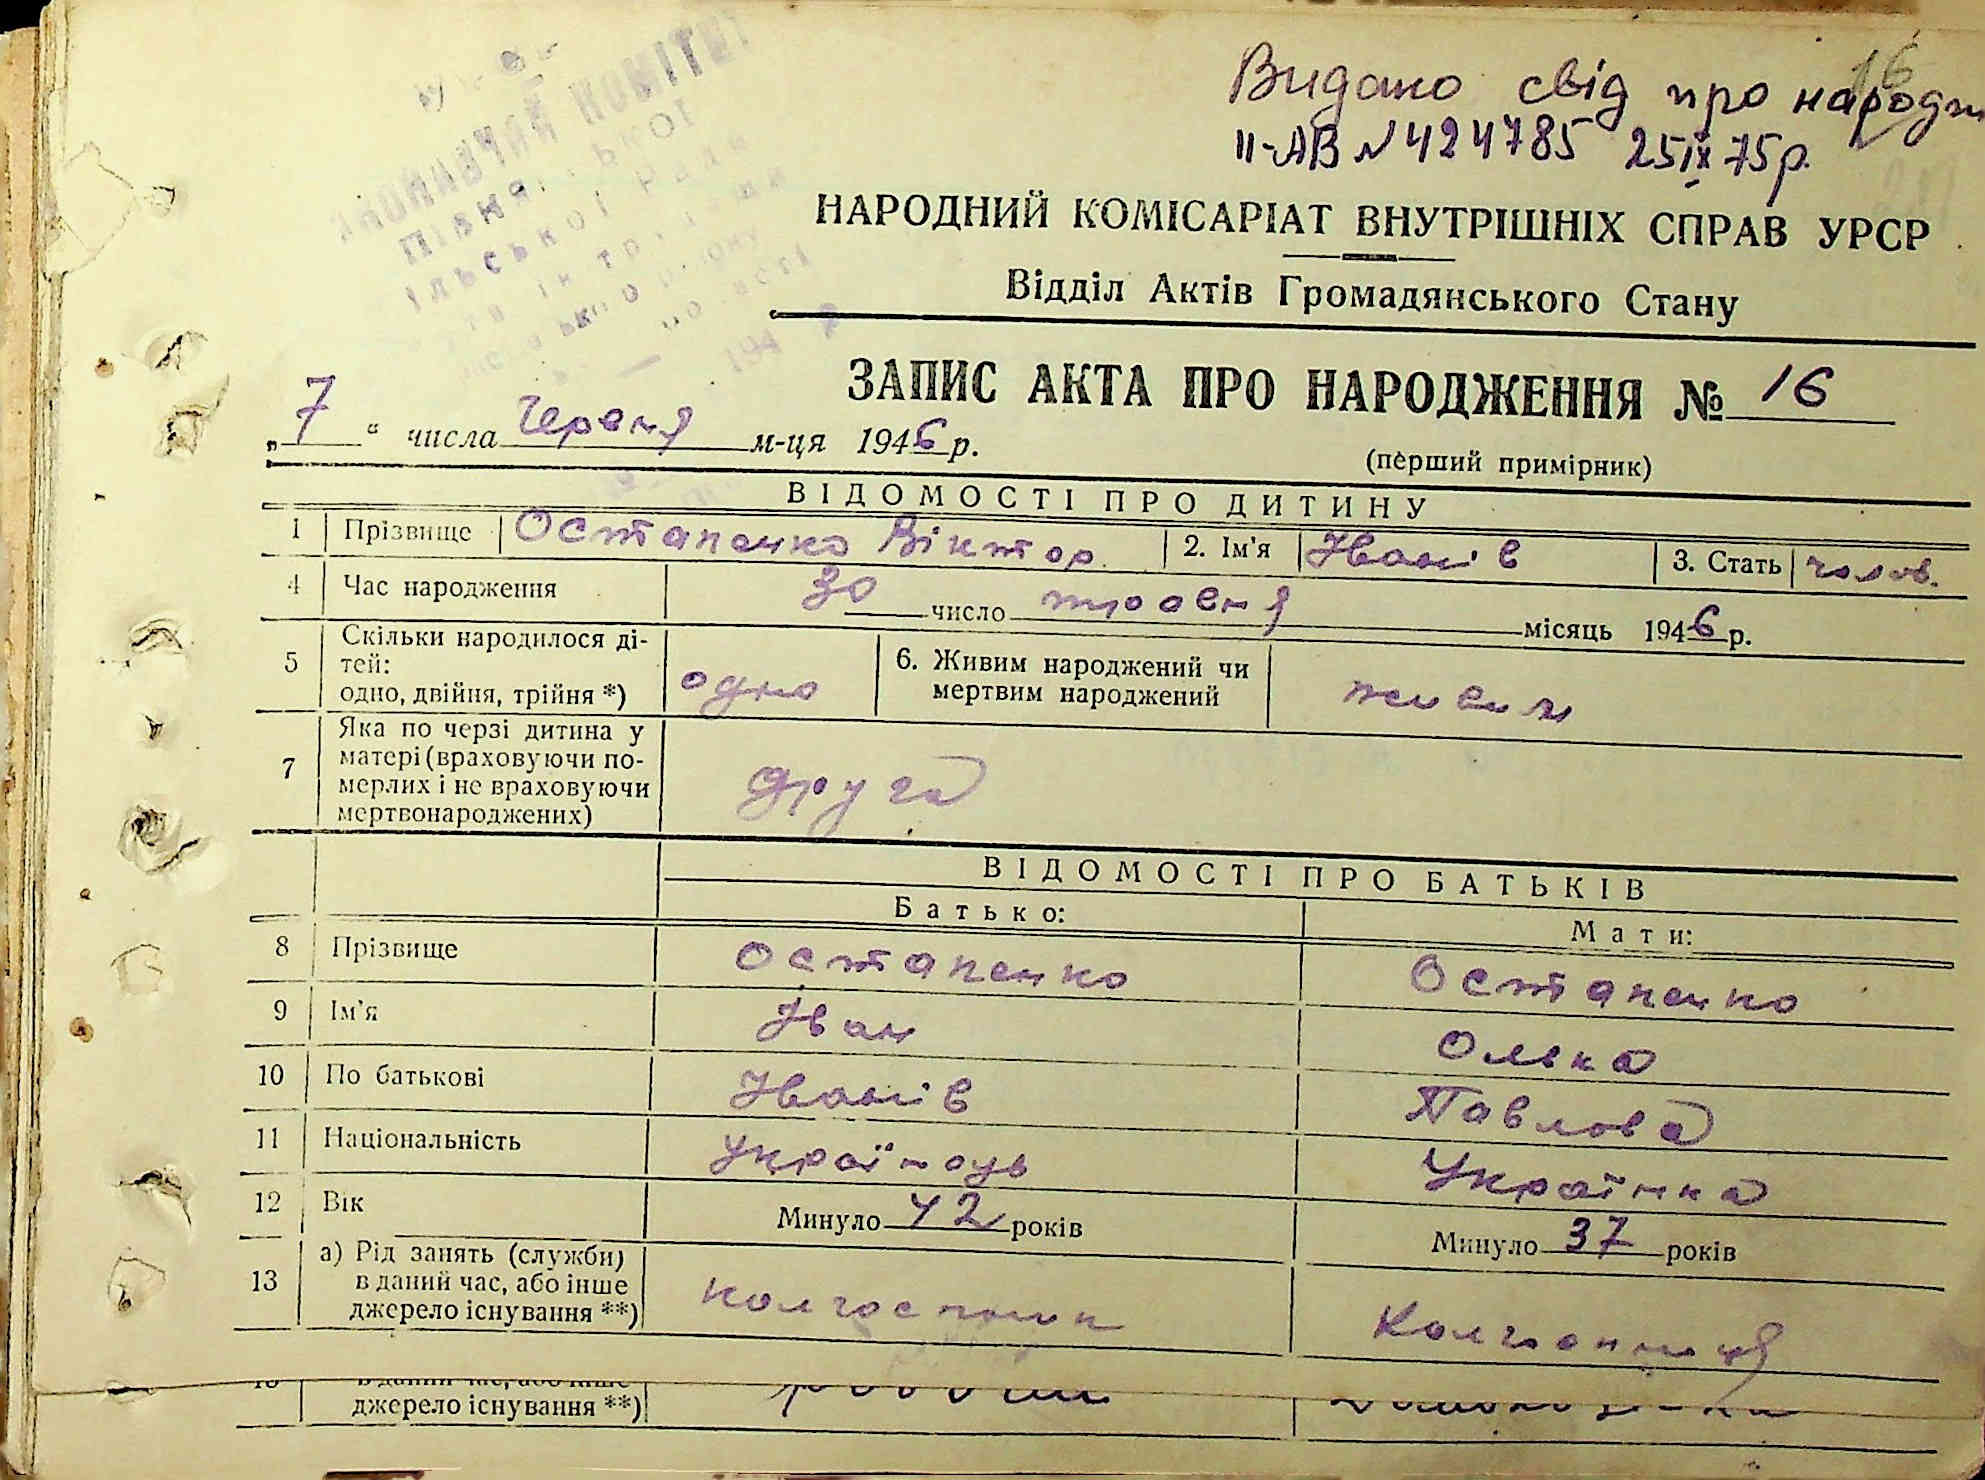 16
Видано свід про народж
II-АВ N 424785 25 IX 75р.
НАРОДНИЙ КОМІСАРІАТ ВНУТРІШНІХ СПРАВ УРСР
Відділ Актів Громадянського Стану
ЗАПИС АКТА ПРО НАРОДЖЕННЯ № 16
„7“ числа Червня м-ця 1946 р.
(перший примірник)
ВІДОМОСТІ ПРО ДИТИНУ
1 Прізвище Остапенко Віктор 2. Ім'я Іванів 3. Стать чолов.
4 Час народження 30 число травня місяць 1946 р.
5 Скільки народилося ді-
тей:
одно, двійня, трійня *) одно 6. Живим народжений чи
мертвим народжений живим
7 Яка по черзі дитина у
матері (враховуючи по-
мерлих і не враховуючи
мертвонароджених) друга
ВІДОМОСТІ ПРО БАТЬКІВ
Батько: Мати:
8 Прізвище Остапенко Остапенко
9 Ім'я Іван Олька
10 По батькові Іванів Павлова
11 Національність Українець Українка
12 Вік Минуло 42 років Минуло 37 років
13 а) Рід занять (служби)
в даний час, або інше
джерело існування **) колгоспник Колгоспниця
джерело існування **)